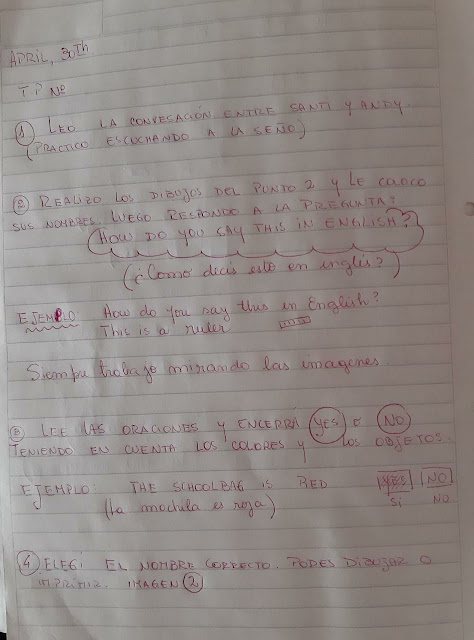 APRIL, 30TH
T.P Nº
① LEO LA CONVESACIÓN ENTRE SANTI Y ANDY.
(PRACTICO ESCUCHANDO A LA SEÑO)
② REALIZO LOS DIBUJOS DEL PUNTO 2 Y LE COLOCO
SUS NOMBRES. LUEGO RESPONDO A LA PREGUNTA:
HOW DO YOU SAY THIS IN ENGLISH?
(¿Como decis esto en inglés?)
EJEMPLO: How do you say this in English?
This is a ruler
Siempre trabajo mirando las imagenes.
③ LEE LAS ORACIONES Y ENCERRÁ YES O NO
TENIENDO EN CUENTA LOS COLORES Y LOS OBJETOS.
EJEMPLO: THE SCHOOLBAG IS RED YES NO
(La mochila es roja) SI NO
④ ELEGÍ EL NOMBRE CORRECTO. PODES DIBUJAR O
IMPRIMIR. IMAGEN ②